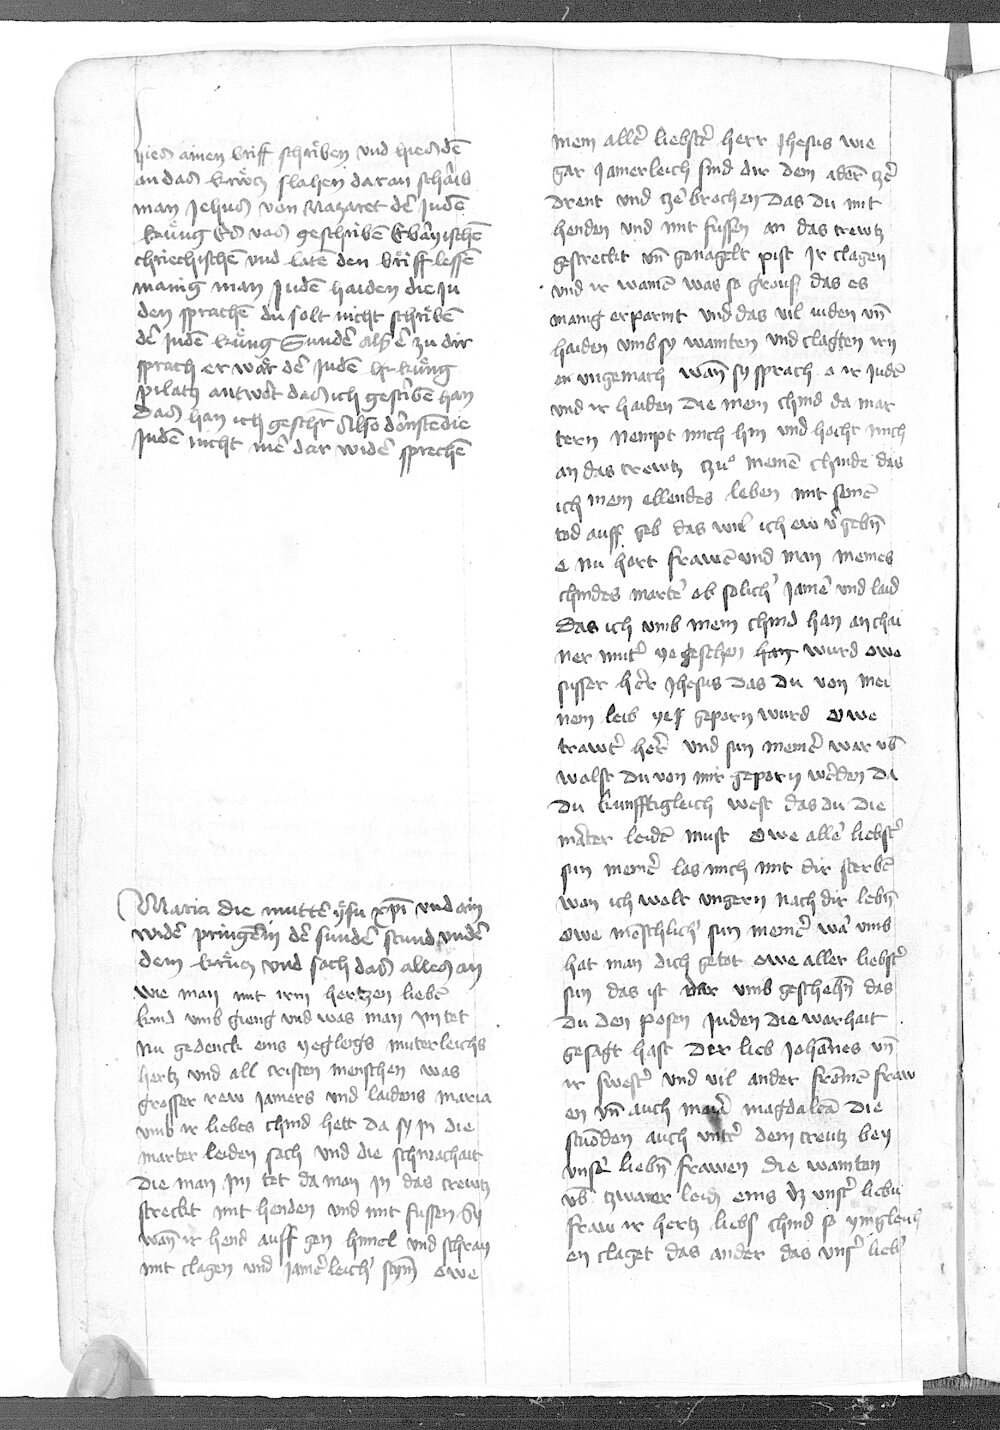 hies ainen briff schriben und hies dē
an das krewtz slahen daran schraib
man Jehus von Nazaret dē Juden
kunig Es was geschribē Ebrayischē
chriechischē vnd latē den briff lessē
manig man Judē haiden die zu
den sprachē du solt nicht schribē
dē Judē kunig Sundē als er zu dir
sprach er wār dē Judē kunig
pilatz antwōrt das ich geschribē han
Das han ich geschr Also dorstē die
Judē nicht mē dar widē sprechē
Maria die muttē ihesu xpi vnd ain
widē pringerin dē sundē stund vndē
dem krewtz vnd sach das alles an
wie man mit irm hertzen liebē
kind vmb gieng vnd was man ym tet
Nu gedenck eins yegleigs muterleichs
hertz vnd all cristen menschen was
grosser rew Jamers vnd laidens maria
vmb ir liebes chind hett da sy In die
marter leiden sach vnd die schmachait
die man Im tet da man in das crewtz
streckt mit henden vnd mit fussen Sy
wan̄ ir hend auff gen himel vnd schray
mit clagen vnd Jamēleich' stym̄ owe
mein allē liebstē herr Jhesus wie
gar Jamerleich sind dir dein adern tzē
drent vnd tzē brochen Das du mit
henden vnd mit fussen an das crewtz
gestreckt vn̄ genagelt pist Ir clagen
vnd ir wainē was so grous das es
manig erparmt vnd das vil iuden vn̄
haiden vmb sy wainten vnd clagten irn
en vngemach wan̄ sy sprach o ir Judē
vnd ir haiden Die mein chind da mar
tern Nempt mich hin vnd hocht mich
an das crewtz tzu meinē chinde das
ich mein ellendes leben mit seinē
tod auff geb das wil ich ew v'gebn̄
o nu hort frawē vnd man meines
chindes martē ob solich' Jamē vnd laid
Das ich vmb mein chind han an chai
ner mut' ye geschen han wurd owe
susser herr Jhesus Das Du von mei
nem leib yes geporn wurd Owe
trawtē herr vnd sun meinē war vb
wolst Du von mir geporn wēden Da
Du kunfftigleich west das du die
māter leidē must Owe allē liebstē
sun meinē las mich mit dir sterbē
wan ich wolt vngern nach dir lebn̄
owe mēschlich' sun meinē wā vmb
hat man dich getöt owe aller liebstē
sun das ist dar vmb geschehn̄ das
Du den posen Juden die warhait
gesagt hast Der lieb Johānes vn̄
ir swestē vnd vil ander frōmē fraw
en vn̄ auch maria magdalēa Die
stuōnden auch vntē dem creutz bey
vnsē liebn̄ frawen die wainten
vb tzwaier leid eins dz vnsē liebū
fraw ir hertz liebs chind so ynigleich
en claget das ander das vnsē lieb'